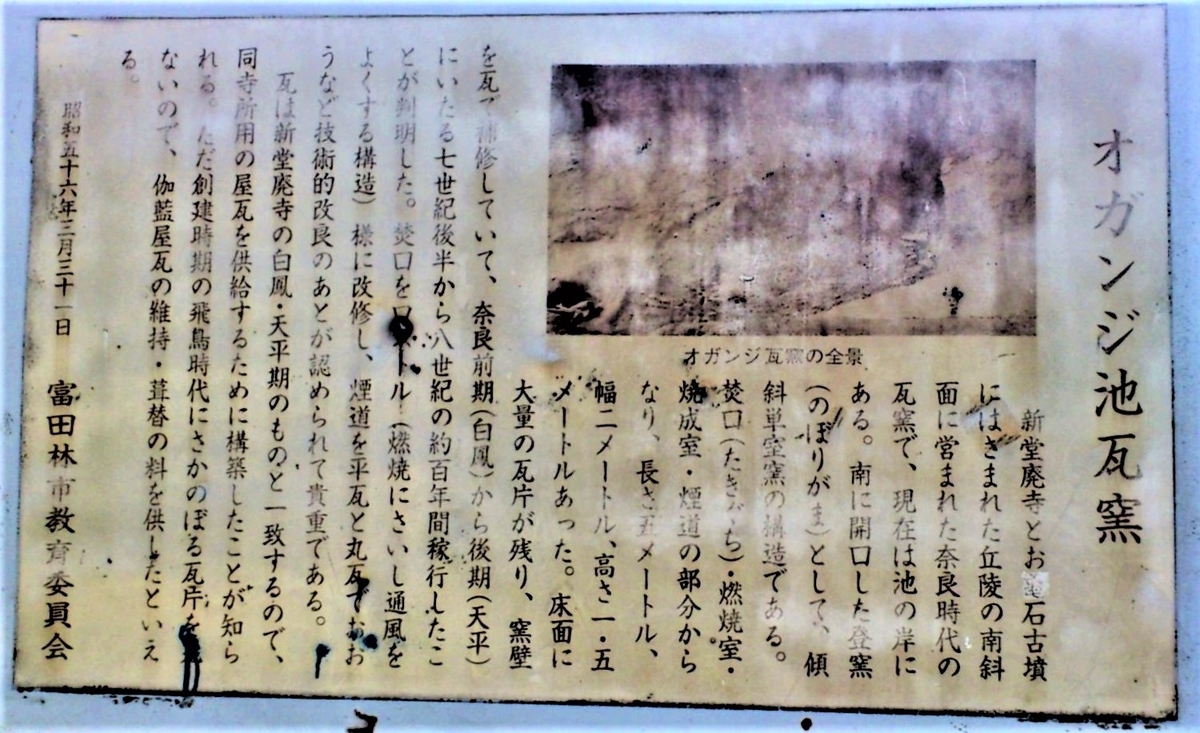 オガンジ池瓦窯
新堂廃寺とお石古墳
にはさまれた丘陵の南斜
面に営まれた奈良時代の
瓦窯で、現在は池の岸に
ある。南に開口した登窯
(のぼりがま)として、傾
斜単室窯の構造である。
焚口(たきぐち)・燃焼室・
焼成室・煙道の部分から
なり、長さ五メートル、
幅二メートル、高さ一・五
メートルあった。床面に
大量の瓦片が残り、窯壁
を瓦で補修していて、奈良前期(白鳳)から後期(天平)
にいたる七世紀後半から八世紀の約百年間稼行したこ
とが判明した。焚口をロストル(燃焼にさいし通風を
よくする構造)様に改修し、煙道を平瓦と丸瓦でおお
うなど技術的改良のあとが認められて貴重である。
瓦は新堂廃寺の白鳳・天平期のものと一致するので、
同寺所用の屋瓦を供給するために構築したことが知ら
れる。ただ創建時期の飛鳥時代にさかのぼる瓦片を
ないので、伽藍屋瓦の維持・葺替の料を供したといえ
る。
昭和五十六年三月三十一日
富田林市教育委員会
オガンジ瓦窯の全景